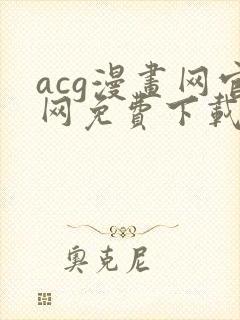 acg漫畫网官
网免費下載
奥克尼